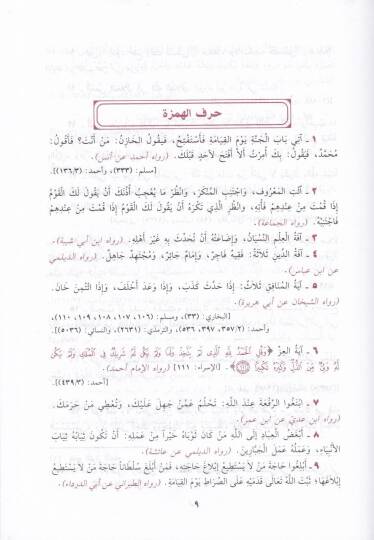 حرف الهمزة
١ - آتِي بَابَ الْجَنَّةِ يَوْمَ الْقِيَامَةِ فَأَسْتَفْتِحُ، فَيَقُولُ الْخَازِنُ: مَنْ أَنْتَ؟ فَأَقُولُ:
مُحَمَّدٌ، فَيَقُولُ: بِكَ أُمِرْتُ أَلاَّ أَفْتَحَ لأَحَدٍ قَبْلَكَ. (رواه أحمد عن أنس).
[مسلم: (٣٣٣)، وأحمد: (١٣٦/٣)].
٢ - آئْتِ الْمَعْرُوفَ، وَاجْتَنِبِ الْمُنْكَرَ، وَانْظُرْ مَا يُعْجِبُ أُذُنَكَ أَنْ يَقُولَ لَكَ الْقَوْمُ
إِذَا قُمْتَ مِنْ عِنْدِهِمْ فَأْتِهِ، وَانْظُرِ الَّذِي تَكْرَهُ أَنْ يَقُولَ لَكَ الْقَوْمُ إِذَا قُمْتَ مِنْ عِنْدِهِمْ
فَاجْتَنِبْهُ. (رواه الجماعة).
٣ - آفَةُ الْعِلْمِ النِّسْيَانُ، وَإِضَاعَتُهُ أَنْ تُحَدِّثَ بِهِ غَيْرَ أَهْلِهِ. (رواه ابن أبي شيبة).
٤ - آفَةُ الدِّينِ ثَلاَثَةٌ: فَقِيهٌ فَاجِرٌ، وَإِمَامٌ جَائِرٌ، وَمُجْتَهِدٌ جَاهِلٌ. (رواه الديلمي
عن ابن عباس).
٥ - آيَةُ الْمُنَافِقِ ثَلاَثٌ: إِذَا حَدَّثَ كَذَبَ، وَإِذَا وَعَدَ أَخْلَفَ، وَإِذَا ائْتُمِنَ خَانَ.
(رواه الشيخان عن أبي هريرة).
[البخاري: (٣٣)، ومسلم: (١٠٦، ١٠٧، ١٠٨، ١٠٩، ١١٠)،
وأحمد: (٣٥٧/٢، ٣٩٧، ٥٣٦)، والترمذي: (٢٦٣١)، والنسائي: (٥٠٣٦)].
٦ - آيَةُ الْعِزِّ ﴿وَقُلِ الْحَمْدُ لِلَّهِ الَّذِي لَمْ يَتَّخِذْ وَلَدًا وَلَمْ يَكُنْ لَهُ شَرِيكٌ فِي الْمُلْكِ وَلَمْ يَكُنْ
لَهُ وَلِيٌّ مِنَ الذُّلِّ وَكَبِّرْهُ تَكْبِيرًا﴾ [الإسراء: ١١١] (رواه الإمام أحمد).
[أحمد: (٤٣٩/٣)].
٧ - ابْتَغُوا الرِّفْعَةَ عِنْدَ اللَّهِ: تَحْلُمُ عَمَّنْ جَهِلَ عَلَيْكَ، وَتُعْطِي مَنْ حَرَمَكَ.
(رواه ابن عدي عن ابن عمر).
٨ - أَبْغَضُ الْعِبَادِ إِلَى اللَّهِ مَنْ كَانَ ثَوْبَاهُ خَيْراً مِنْ عَمَلِهِ: أَنْ تَكُونَ ثِيَابُهُ ثِيَابَ
الأَنْبِيَاءِ، وَعَمَلُهُ عَمَلَ الْجَبَّارِينَ. (رواه الديلمي عن عائشة).
٩ - أَبْلِغُوا حَاجَةَ مَنْ لاَ يَسْتَطِيعُ إِبْلاَغَ حَاجَتِهِ، فَمَنْ أَبْلَغَ سُلْطَاناً حَاجَةَ مَنْ لاَ يَسْتَطِيعُ
إِبْلاَغَهَا؛ ثَبَّتَ اللَّهُ تَعَالَى قَدَمَيْهِ عَلَى الصِّرَاطِ يَوْمَ الْقِيَامَةِ. (رواه الطبراني عن أبي الدرداء).
٩